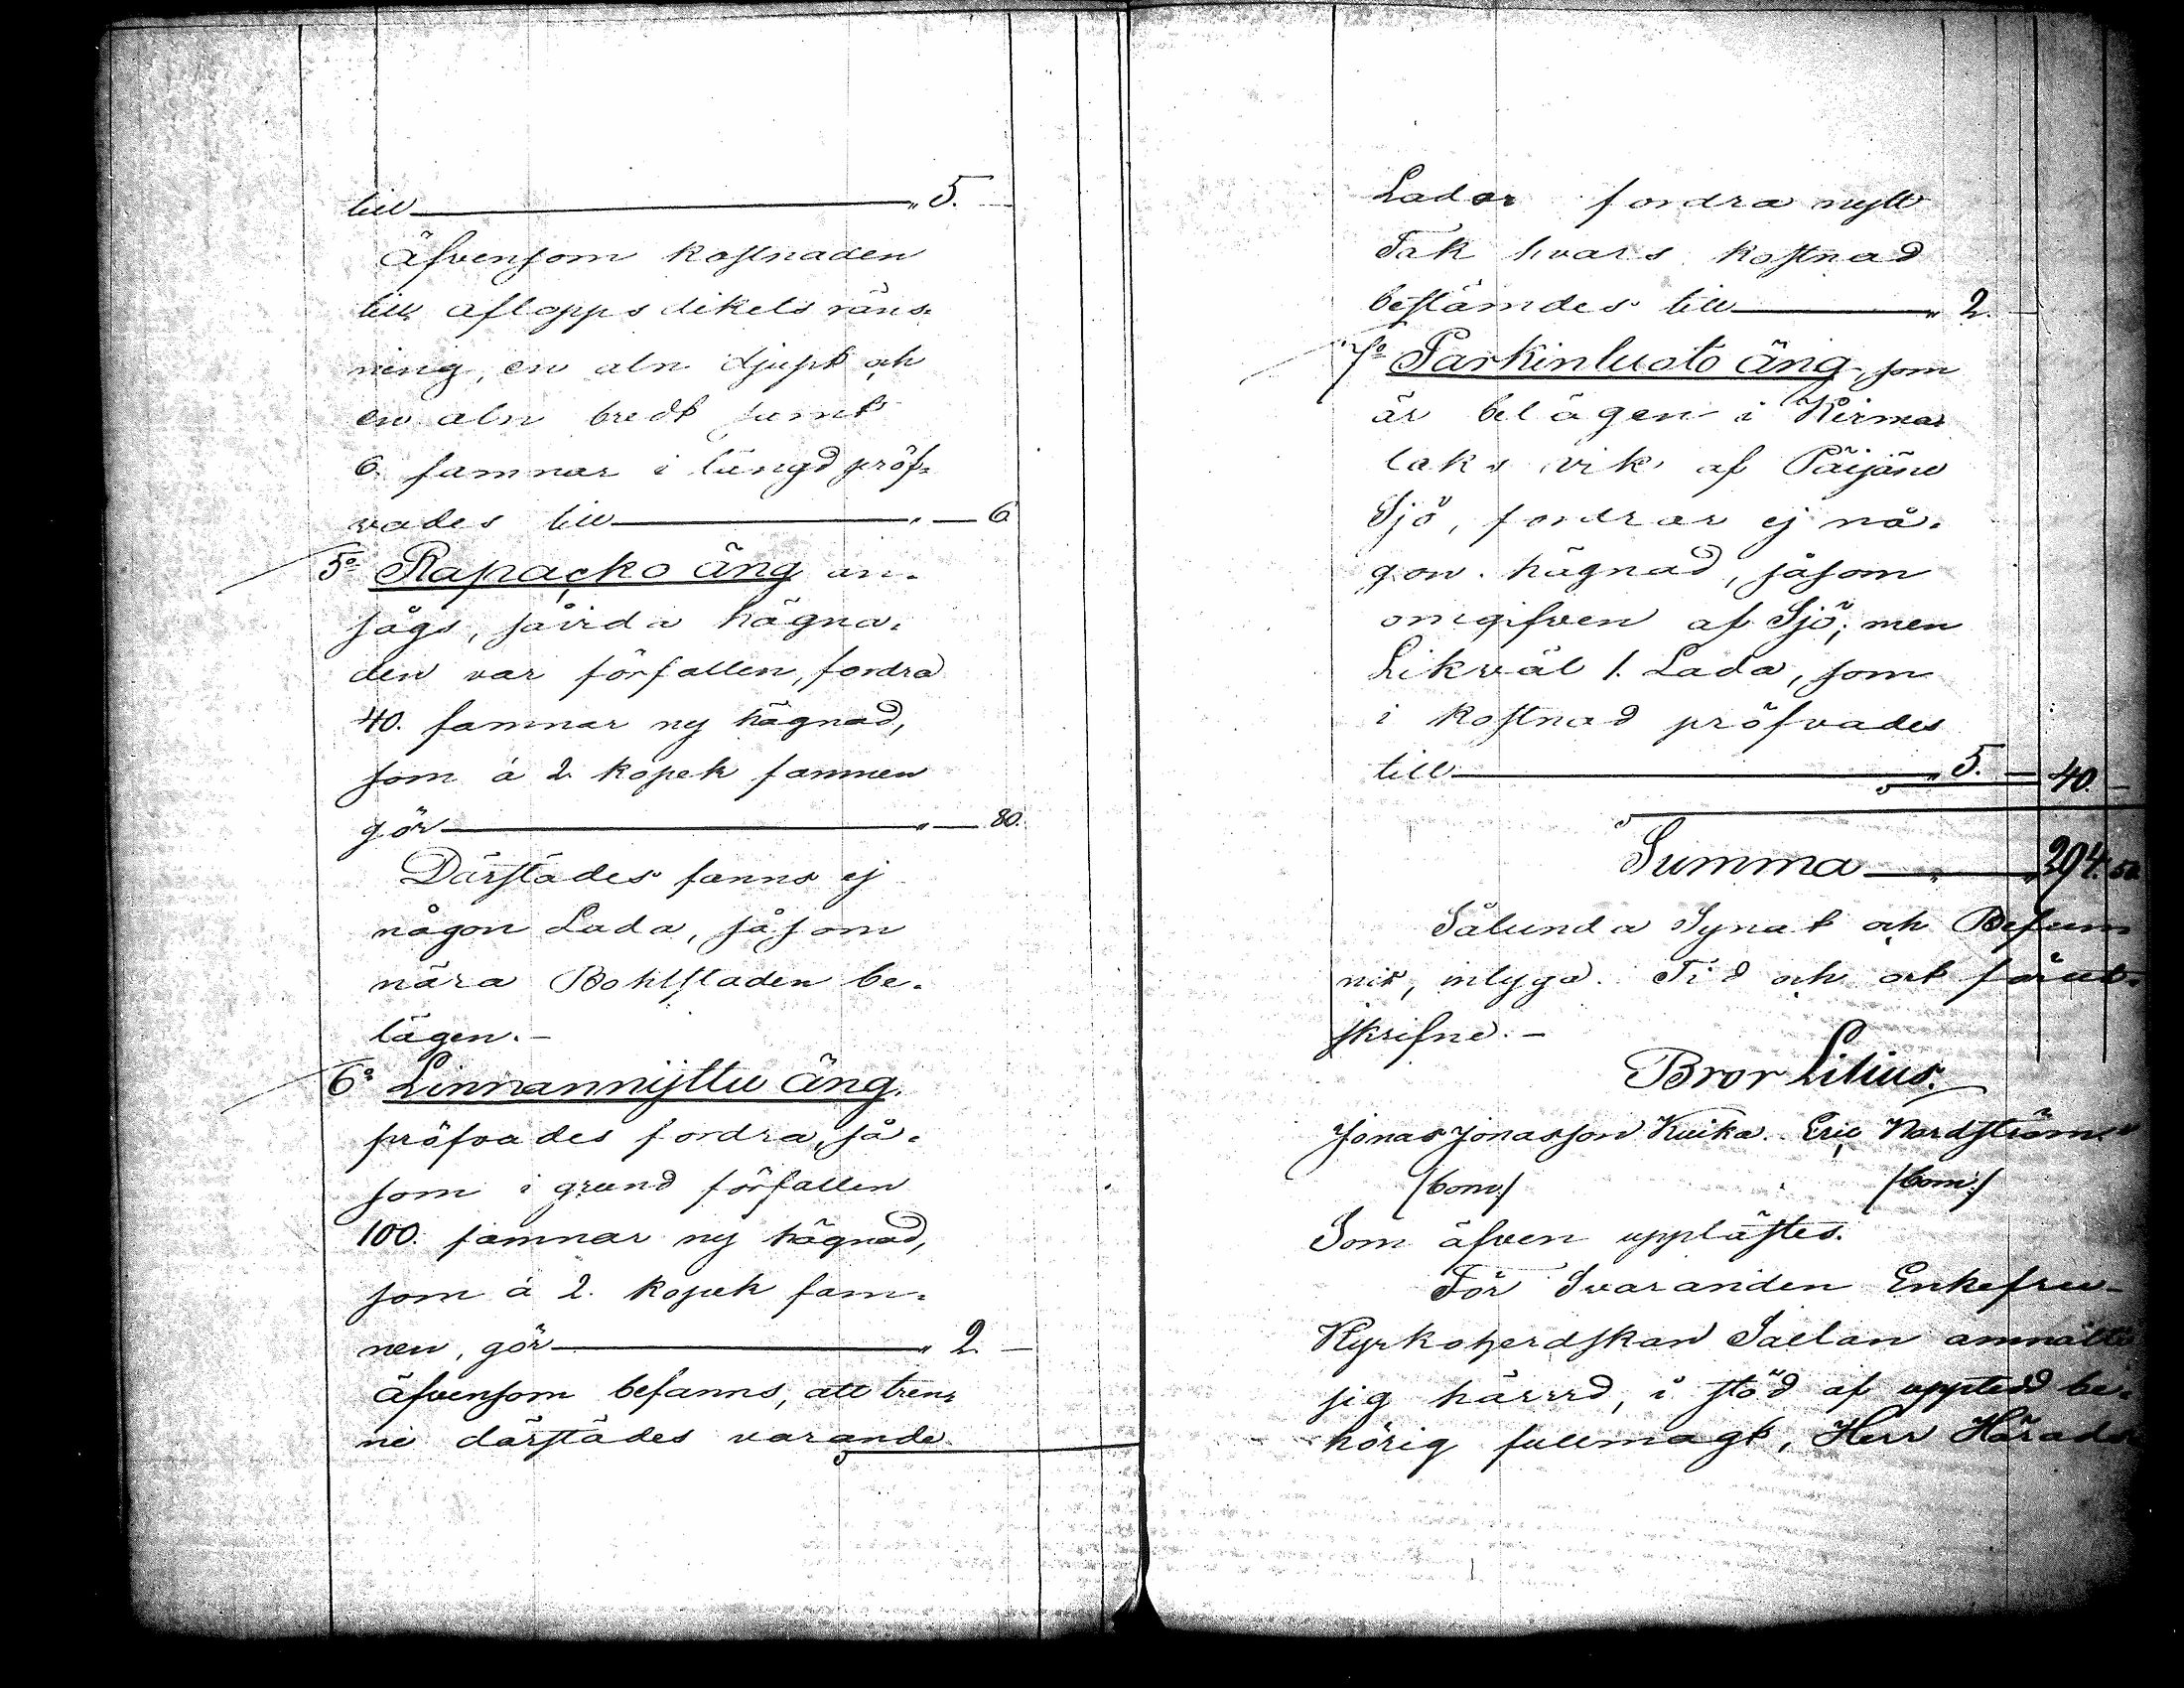 till " 5. —
Äfvensom kostnaden
till aflopps dikets räns-
ning, en aln djupt och
en aln bredt samt
6. famnar i längd pröf-
vades till " — 6
5o Rapacko äng an-
sågs, såvida hägna-
den var förfallen, fordra
40. famnar ny hägnad,
som á 2 kopek famnen
gör " — 80.
Därstädes fanns ej
någon Lada, såsom
nära Bohlstaden be-
lägen. —
6o Linnannijttu äng.
pröfvades fordra, så-
som i grund förfallen
100. famnar ny hägnad,
som á 2. kopek fam-
nen, gör " 2 —
äfvensom befanns, att tren-
ne därstädes varande
Lador fordra nytt
Tak hvars kostnad
bestämdes till " 2. —
7o Parkinluoto äng, som
är belägen i Kirma-
laks vik af Päijäne
Sjö, fordrar ej nå-
gon hägnad, såsom
omgifven af Sjö; men
Likväl 1. Lada, som
i kostnad pröfvades
till " 5. — 40. —
Summa " 294. 50
Sålunda Synat och Befun-
nit, intyga. Tid och ort förut-
skrifne. —
Bror Lilius.
Jonas Jonasson Kuika. Eric Nordström
/bom:/ /bom:/
Som äfven upplästes.
För Svaranden Enkefru-
Kyrkoherdskan Saelan anmälte
sig härrd, i stöd af uppted be-
hörig fullmagt, Herr Härads